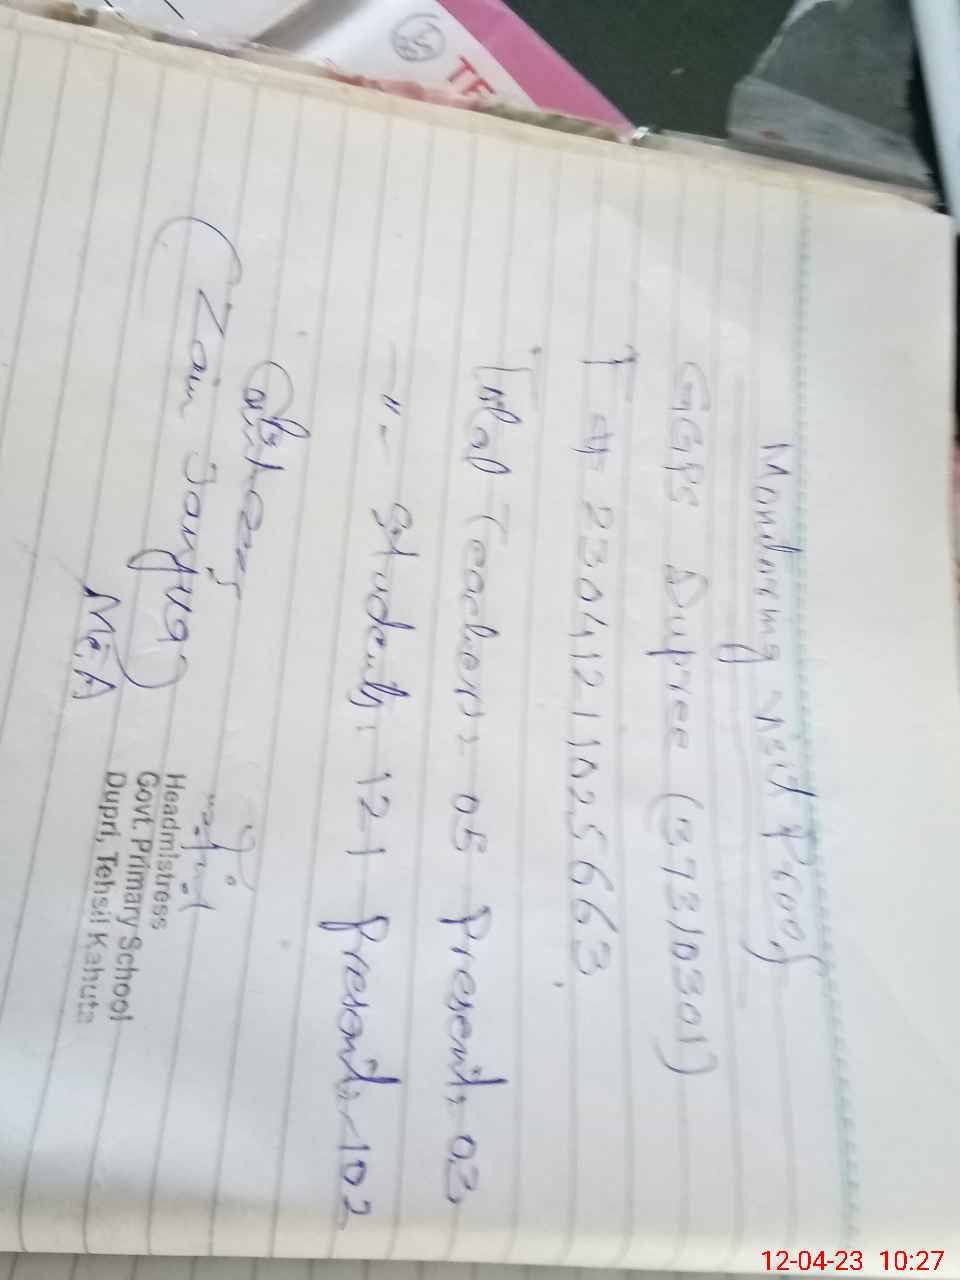 Monitoring Visit Proof
GGPS Dupree (37310301)
T # 2304121102563
Total Teachers: 05 Present: 03
-"- Students: 121 Present: 102
(Zain
MEA
Headmistress
Govt. Primary School
Dupri, Tehsil Kahuta
TE
12-04-23 10:27